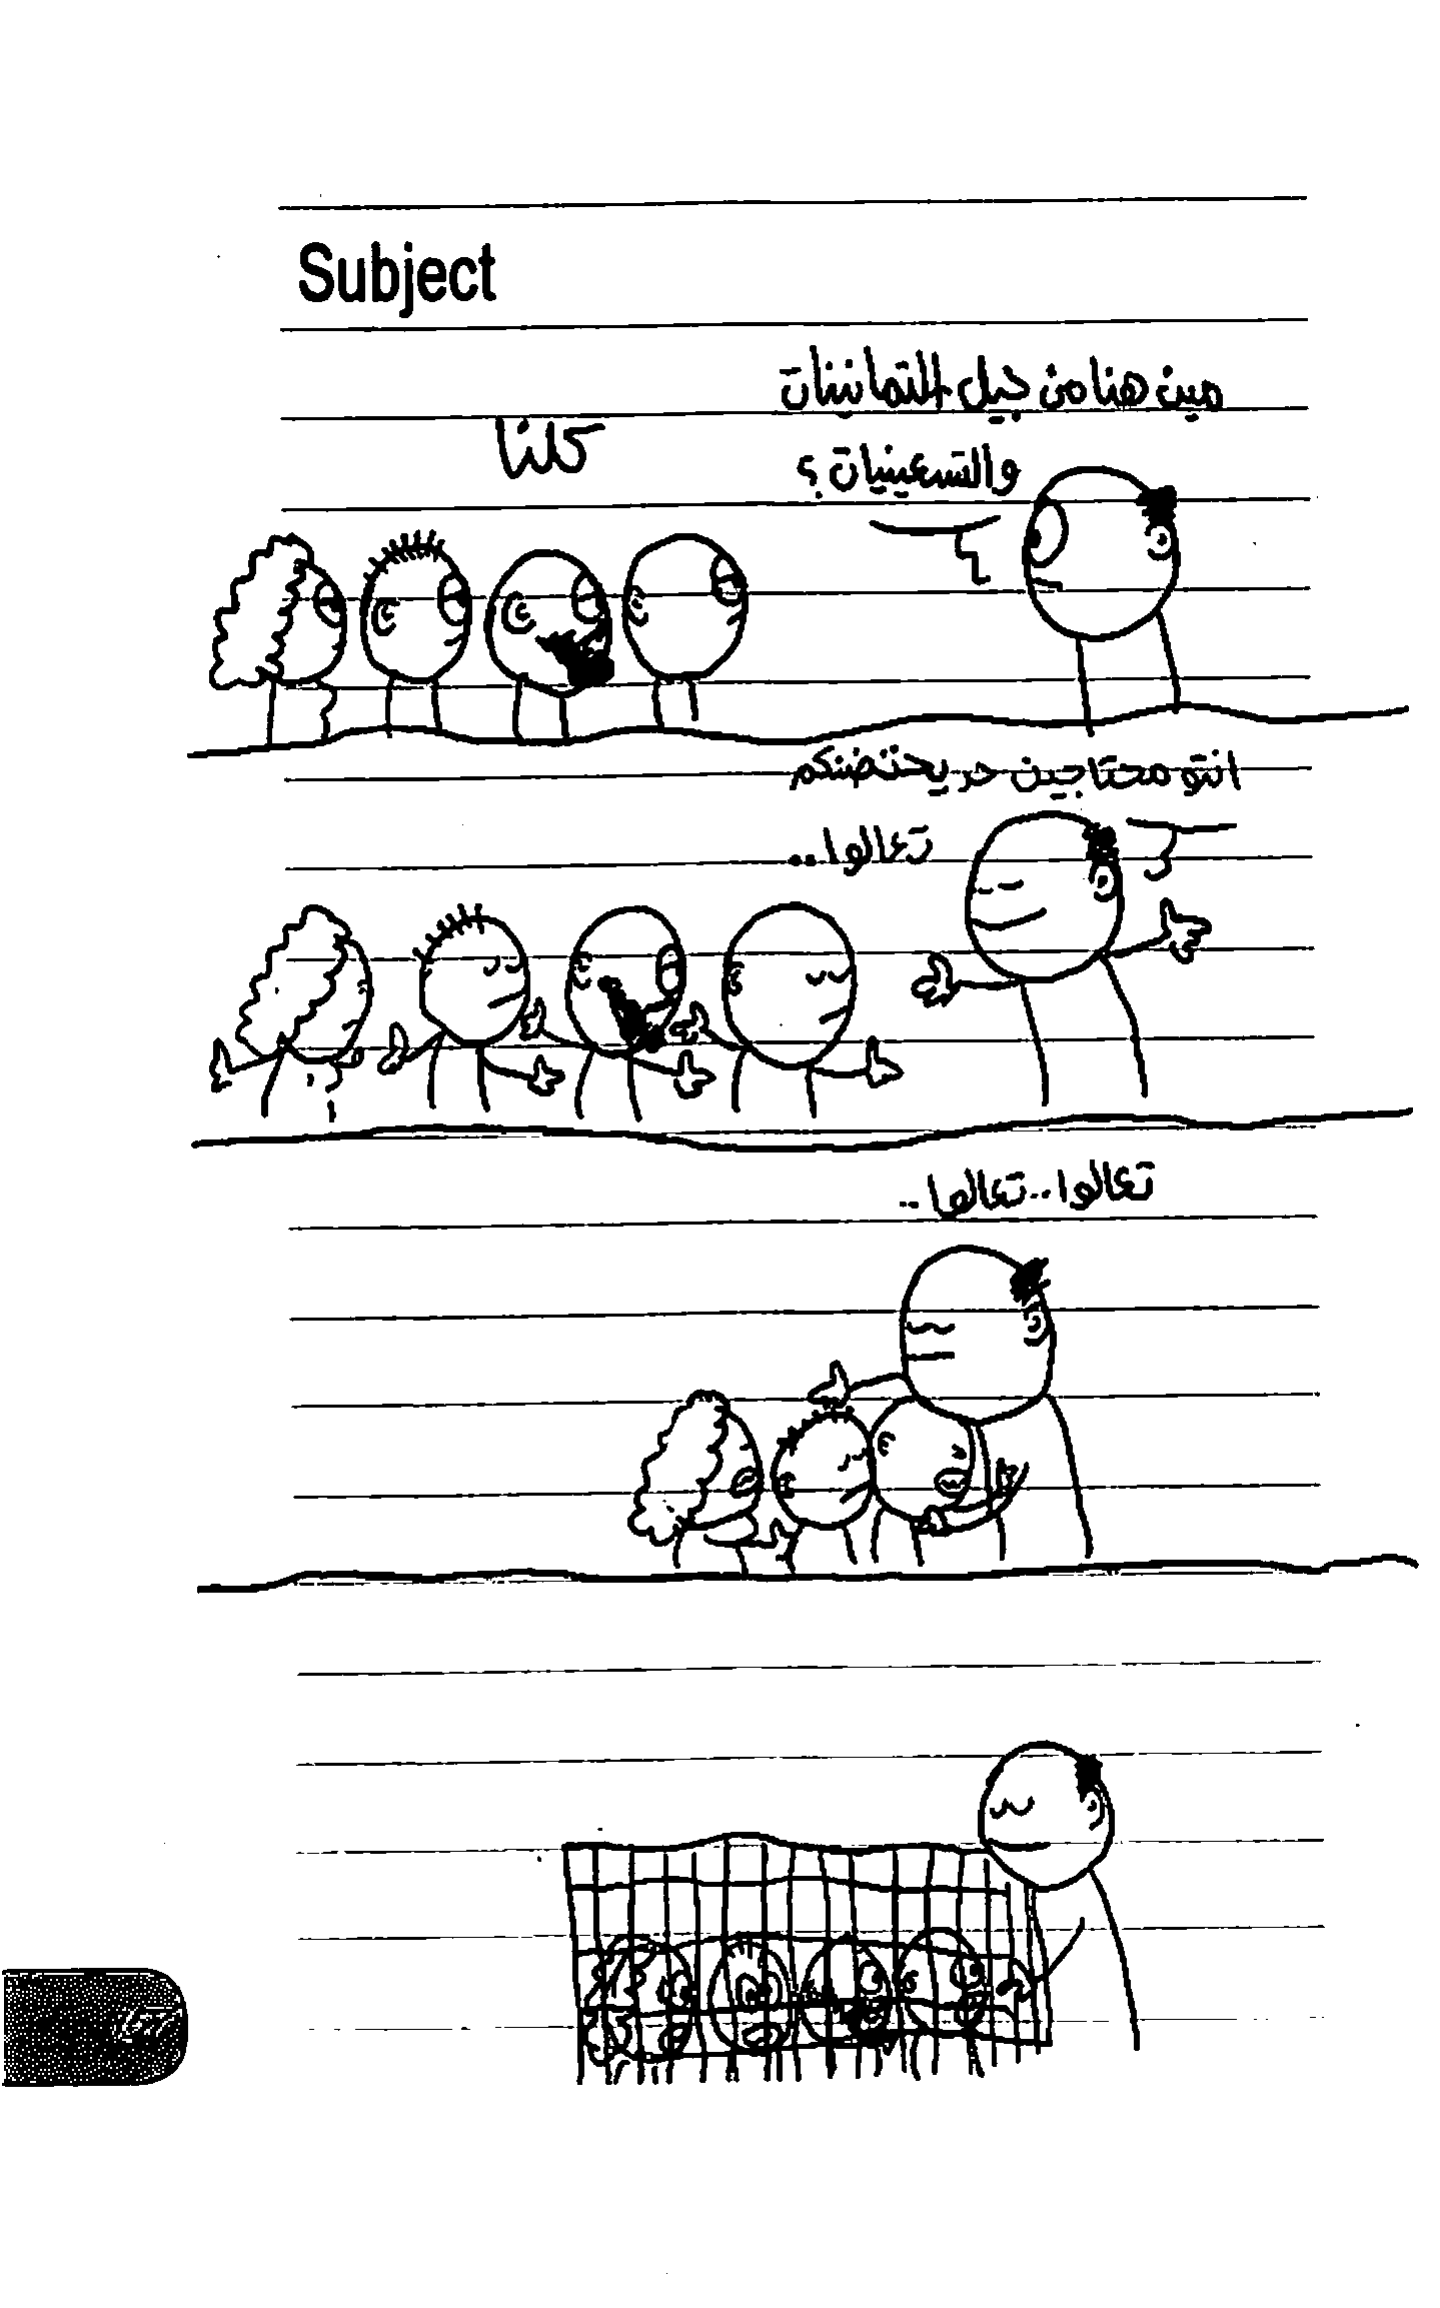 Subject
مين هنا من جيل التمانينات
والتسعينيات؟
كلنا
انتو محتاجين حد يحتضنكم
تعالوا..
تعالوا..تعالوا..